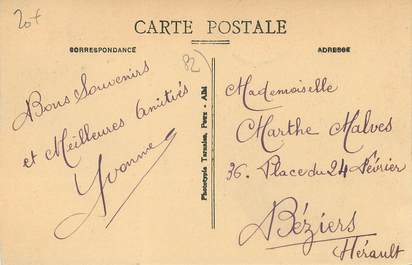 20f
CARTE POSTALE
CORRESPONDANCE
ADRESSE
Bons Souvenirs
et Meilleures amitiés
Yvonne
Phototypie Tarnaise, Poux - Albi
Mademoiselle
Marthe Malves
36. Place du 24 Février
Béziers
Hérault